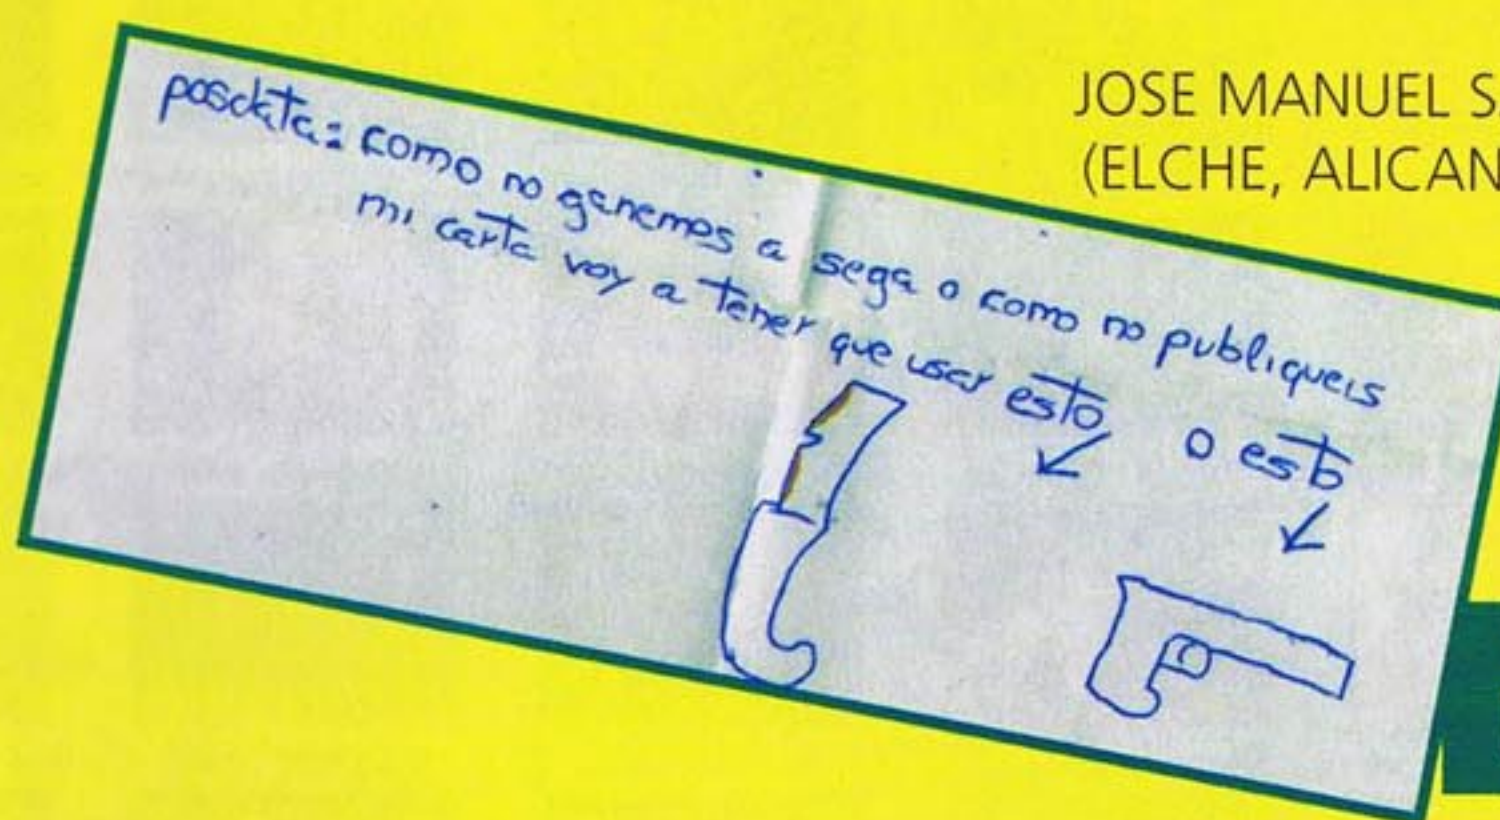 JOSE MANUEL S
(ELCHE, ALICAN
posdata: como no ganemos a sega o como no publiqueis
mi carta voy a tener que usar esto o esto